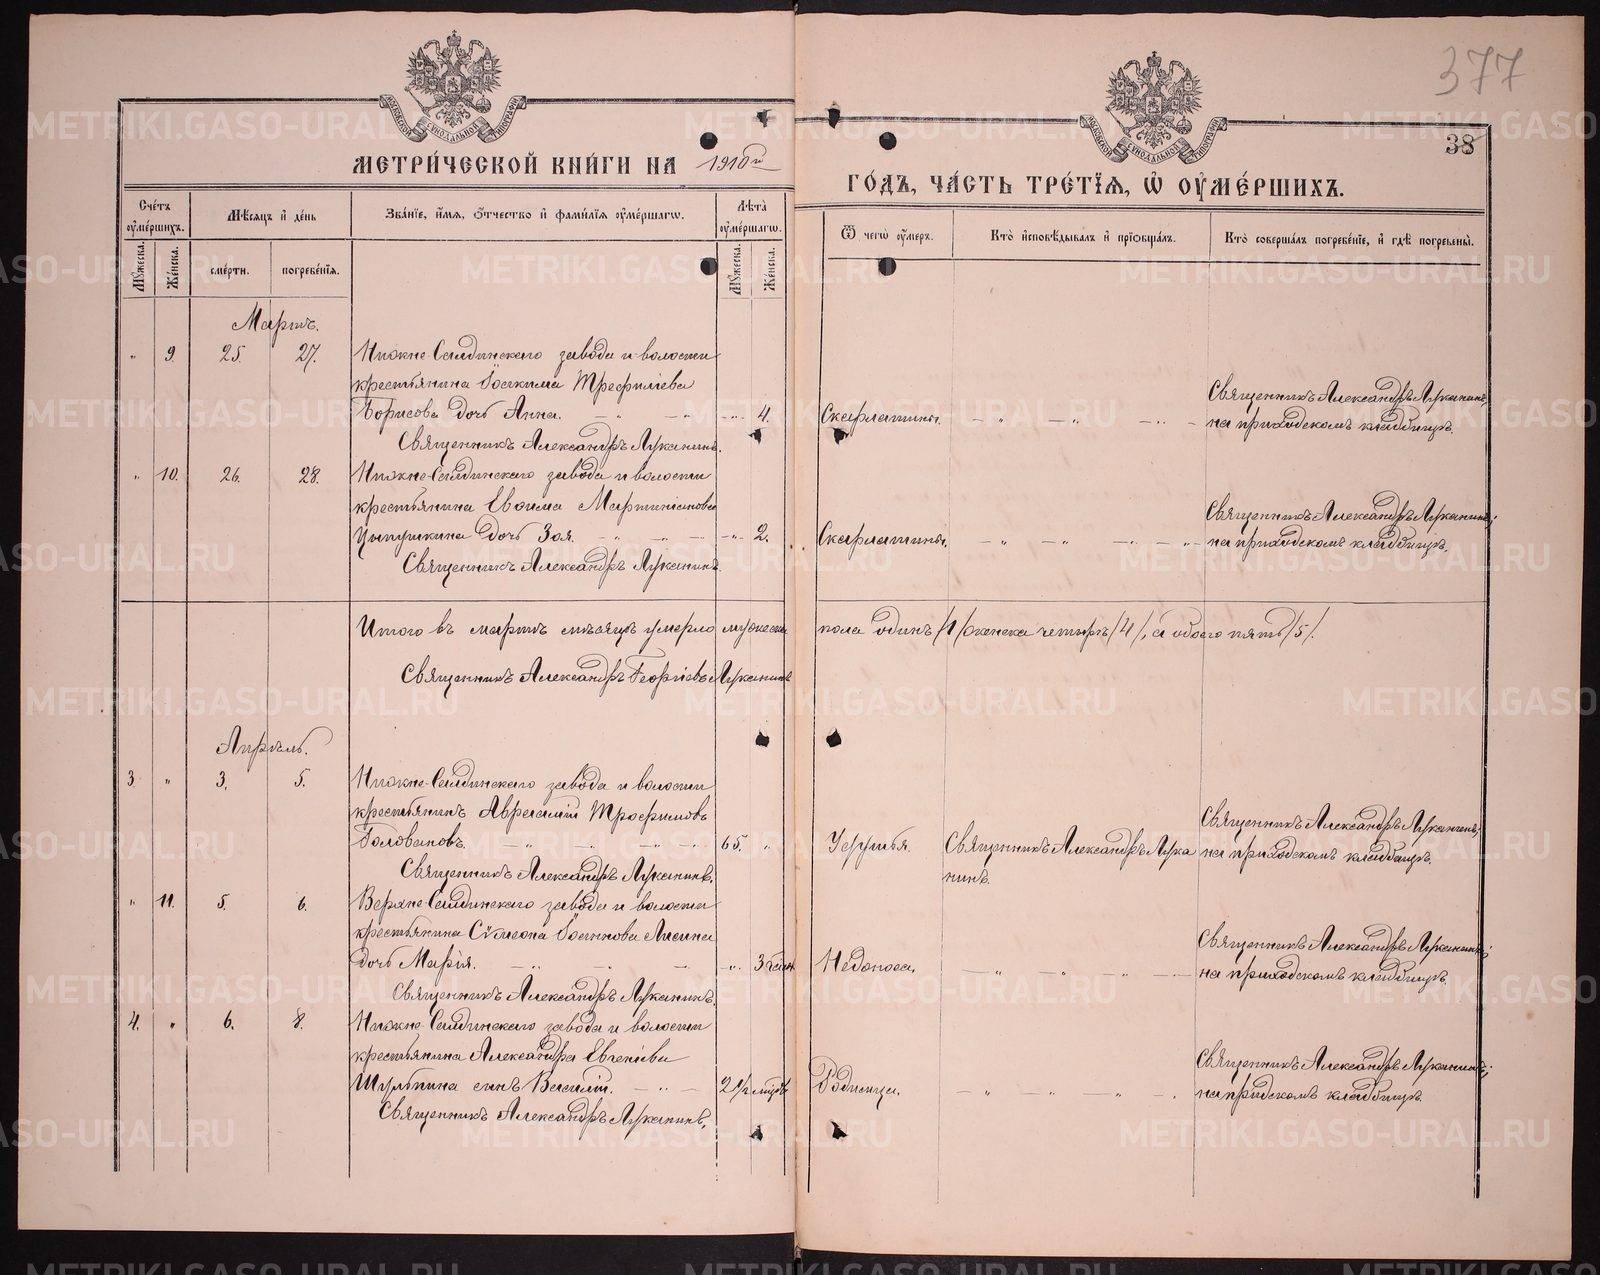 377
38
МОСКОВСКОЙ СѴНОДАЛЬНОЙ ТИПОГРАФІИ
МОСКОВСКОЙ СѴНОДАЛЬНОЙ ТИПОГРАФІИ
МЕТРИ́ЧЕСКОЙ КНИ́ГИ НА 1910й
ГО́ДЪ, ЧА́СТЬ ТРЕ́ТІЯ, Ѡ ОУМЕ́РШИХЪ.
Сче́тъ оуме́ршихъ.
Мꙋжеска. Же́нска.
Мѣ́сяцъ и де́нь
сме́рти. погребе́нія.
Зва́ніе, и́мя, о́тчество и фами́лія оуме́ршагѡ.
Лѣ́та оуме́ршагѡ.
Мꙋжеска. Же́нска.
Ѿ чегѡ̀ оу́меръ.
Кто̀ исповѣ́дывалъ и пріѡбща́лъ.
Кто̀ соверша́лъ погребе́ніе, и гдѣ̀ погребены̀.
Мартъ.
" 9. 25. 27. Нижне-Салдинскаго завода и волости
крестьянина Іоакима Трефилиева
Борисова дочь Анна. — " — " — 4. Скарлатины. — " — " — " — Священникъ Александръ Луканинъ, на приходскомъ кладбищѣ.
Священникъ Александръ Луканинъ.
" 10. 26. 28. Нижне-Салдинскаго завода и волости
крестьянина Евѳима Мартиніанова
Цыпушкина дочь Зоя. — " — — " — 2. Скарлатины. — " — " — " — Священникъ Александръ Луканинъ; на приходскомъ кладбищѣ.
Священникъ Александръ Луканинъ.
Итого въ мартѣ мѣсяцѣ умерло мужеска пола одинъ /1/ женска четыре /4/, а обоего пять /5/.
Священникъ Александръ Георгіевъ Луканинъ
Апрѣль.
3. " 3. 5. Нижне-Салдинскаго завода и волости
крестьянинъ Аврамій Трофимовъ
Головановъ. — " — " — 65. " Священникъ Александръ Лука
нинъ. Священникъ Александръ Луканинъ, на приходскомъ кладбищѣ.
Священникъ Александръ Луканинъ.
" 11. 5. 6. Верхне-Салдинскаго завода и волости
крестьянина Сѵмеона Іоаннова Лисина
дочь Марія. — " — — " 3 час. Недоноса. — " — " — " — Священникъ Александръ Луканинъ; на приходскомъ кладбищѣ.
Священникъ Александръ Луканинъ.
4. " 6. 8. Нижне-Салдинскаго завода и волости
крестьянина Александра Евгеніева
Шульпина сынъ Василій. — " — 2 1/2 мѣс. Родимца. — " — " — " — Священникъ Александръ Луканинъ; на приходскомъ кладбищѣ.
Священникъ Александръ Луканинъ.
METRIKI.GASO-URAL.RU